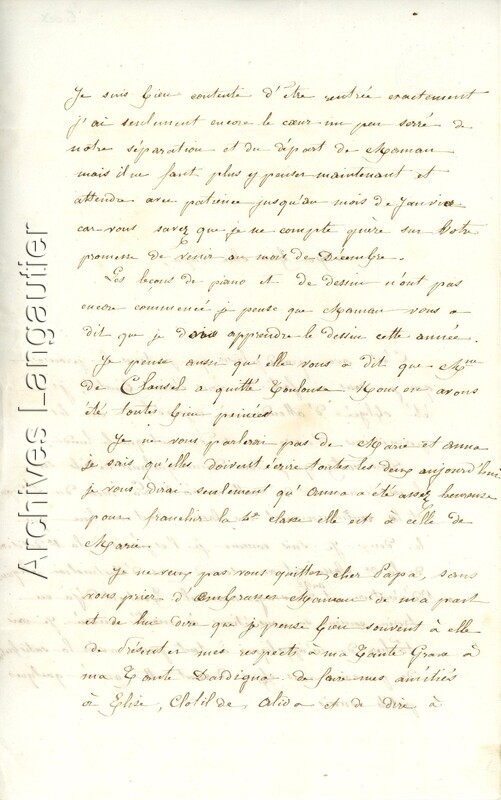 Je suis bien contente d'être rentrée exactement
j'ai seulement encore le cœur un peu serré de
notre séparation et du départ de Maman
mais il ne faut plus y penser maintenant et
attendre avec patience jusqu'au mois de Janvier
car vous savez que je ne compte guère sur Votre
promesse de venir au mois de Décembre.
Les leçons de piano et de dessin n'ont pas
encore commencé je pense que Maman vous a
dit que je dois apprendre le dessin cette année.
Je pense aussi qu'elle vous a dit que Mme
de Clausel a quitté Toulouse Nous en avons
été toutes bien peinées
Je ne vous parlerai pas de Marie et Anna
je sais qu'elles doivent écrire toutes les deux aujourd'hui
je vous dirai seulement qu'Anna a été assez heureuse
pour franchir la 4e classe elle est à celle de
Marie
Je ne veux pas vous quitter cher Papa, sans
vous prier d'embrasser Maman de ma part
et de lui dire que je pense bien souvent à elle
de présenter mes respects à ma Tante Grava à
ma Tante Dardigna de faire mes amitiés
à Elise, Clotilde, Alida et de dire à
Archives Langautier